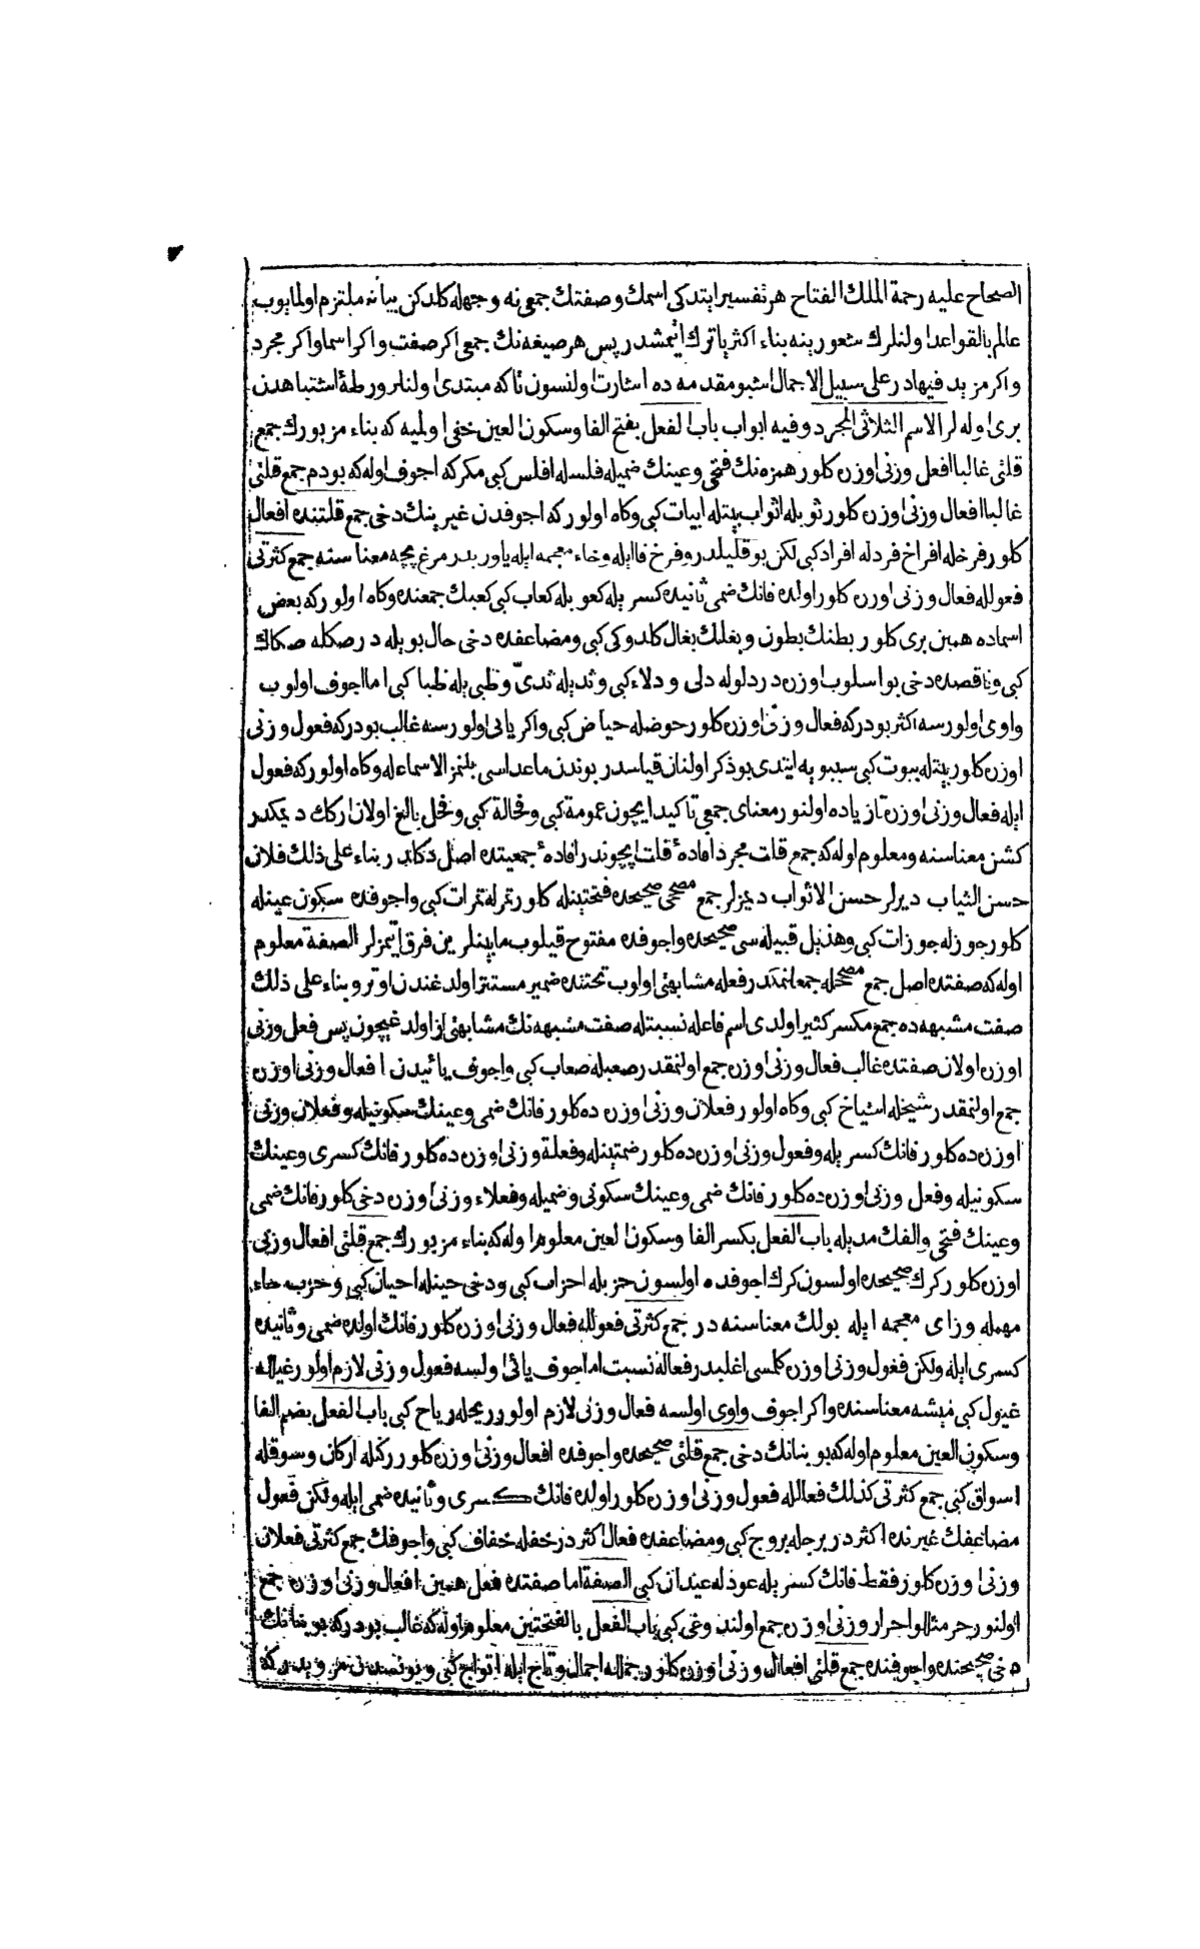 الصحاح عليه رحمة الملك الفتاح هر تفسير ايتدكى اسمك وصفتك جمعى نه وجهله كلدكن بيانه ملتزم اولمايوب
عالم بالقواعد اولنلرك شعورينه بناء اكثريا ترك اتمشدر پس هر صيغه نك جمعى اكر صفت واكر اسما واكر مجرد
واكر مزيد فيهادر على سبيل الاجمال اشبو مقدمه ده اشارت اولنسون تاكه مبتدى اولنلر ورطهٔ اشتباهدن
برى اوله لر الاسم الثلاثى المجرد وفيه ابواب باب الفعل بفتح الفا وسكون العين خفى اولميه كه بناء مزبورك جمع
قلتى غالبا افعل وزنى اوزره كلور همزه نك فتحى وعينك ضميله فلسله افلس كبى مكركه اجوف اوله كه بودم جمع قلتى
غالبا افعال وزنى اوزره كلور ثوبله اثواب بيتله ابيات كبى وكاه اولور كه اجوفدن غيرينك دخى جمع قلتنده افعال
كلور فرخله افراخ فردله افراد كبى لكن بو قليلدر وفرخ فا ايله وخاء معجمه ايله ياوريدر مرغ بچه معناسنه جمع كثرتى
فعولله فعال وزنى اوزره كلور اولده فانك ضمى ثانيده كسريله كعوبله كعاب كبى كعبك جمعنده وكاه اولور كه بعض
اسماده همين برى كلور بطنك بطون وبغلك بغال كلدوكى كبى ومضاعفده دخى حال بويله در صكله صكاك
كبى وناقصده دخى بو اسلوب اوزره در دلوله دلى ودلاء كبى وثديله ثدىّ وظبى يله ظبا كبى اما اجوف اولوب
واوى اولورسه اكثر بودركه فعال وزنى اوزره كلور حوضله حياض كبى واكر يائى اولورسه غالب بودركه فعول وزنى
اوزره كلور بيتله بيوت كبى سيبويه ايتدى بو ذكر اولنان قياسدر بوندن ماعداسى بلنمز الا سماعله وكاه اولور كه فعول
ايله فعال وزنى اوزره تا زياده اولنور معناى جمعى تاكيد ايچون عمومة كبى وفحالة كبى وفحل بالغ اولان اركك ديمكدر
كشن معناسنه ومعلوم اوله كه جمع قلت مجرد افادهٔ قلت ايچوندر افادهٔ جمعيتده اصل دكلدر بناء على ذلك فلان
حسن الثياب ديرلر حسن الاثواب ديمزلر جمع مصححى صحيحده فتحتينله كلور تمرله تمرات كبى واجوفده سكون عينله
كلور جوزله جوزات كبى وهذيل قبيله سى صحيحده واجوفده مفتوح قيلوب مابينلرين فرق ايتمزلر الصفة معلوم
اوله كه صفتده اصل جمع مصححله جمعلنمكدر فعله مشابهتى اولوب تحتنده ضمير مستتر اولدغندن اوترو بناء على ذلك
صفت مشبهه ده جمع مكسر كثير اولدى اسم فاعله نسبتله صفت مشبهه نك مشابهتى از اولدغيچون پس فعل وزنى
اوزره اولان صفتده غالب فعال وزنى اوزره جمع اولنمقدر صعبله صعاب كبى واجوف يائيدن افعال وزنى اوزره
جمع اولنمقدر شيخله اشياخ كبى وكاه اولور فعلان وزنى اوزره ده كلور فانك ضمى وعينك سكونيله وفعلان وزنى
اوزره ده كلور فانك كسريله وفعول وزنى اوزره ده كلور ضمتينله وفعلة وزنى اوزره ده كلور فانك كسرى وعينك
سكونيله وفعل وزنى اوزره ده كلور فانك ضمى وعينك سكونى وضميله وفعلاء وزنى اوزره دخى كلور فانك ضمى
وعينك فتحى والفك مديله باب الفعل بكسر الفا وسكون العين معلوم اوله كه بناء مزبورك جمع قلتى افعال وزنى
اوزره كلور كرك صحيحده اولسون كرك اجوفده اولسون حزبله احزاب كبى ودخى حينله احيان كبى وحزب حاء
مهمله وزاى معجمه ايله بولك معناسنه در جمع كثرتى فعولله فعال وزنى اوزره كلور فانك اولده ضمى وثانيده
كسرى ايله ولكن فعول وزنى اوزره كلمسى اغلبدر فعاله نسبت اما اجوف يائى اولسه فعول وزنى لازم اولور غيلله
غيول كبى ميشه معناسنده واكر اجوف واوى اولسه فعال وزنى لازم اولور ريحله رياح كبى باب الفعل بضم الفا
وسكون العين معلوم اوله كه بو بنانك دخى جمع قلتى صحيحده واجوفده افعال وزنى اوزره كلور ركنله اركان وسوقله
اسواق كبى جمع كثرتى كذلك فعالله فعول وزنى اوزره كلور اولده فانك كسرى وثانيده ضمى ايله ولكن فعول
مضاعفك غيرنده اكثر در برجله بروج كبى ومضاعفده فعال اكثر در خفله خفاف كبى واجوفك جمع كثرتى فعلان
وزنى اوزره كلور فقط فانك كسريله عودله عيدان كبى الصفة اما صفتده فعل همين افعال وزنى اوزره جمع
اولنور حر مثللو احرار وزنى اوزره جمع اولندوغى كبى باب الفعل بالفتحتين معلوم اوله كه غالب بودركه بو بنانك
دخى صحيحنده واجوفنده جمع قلتى افعال وزنى اوزره كلور جملله اجمال وتاج ايله اتواج كبى